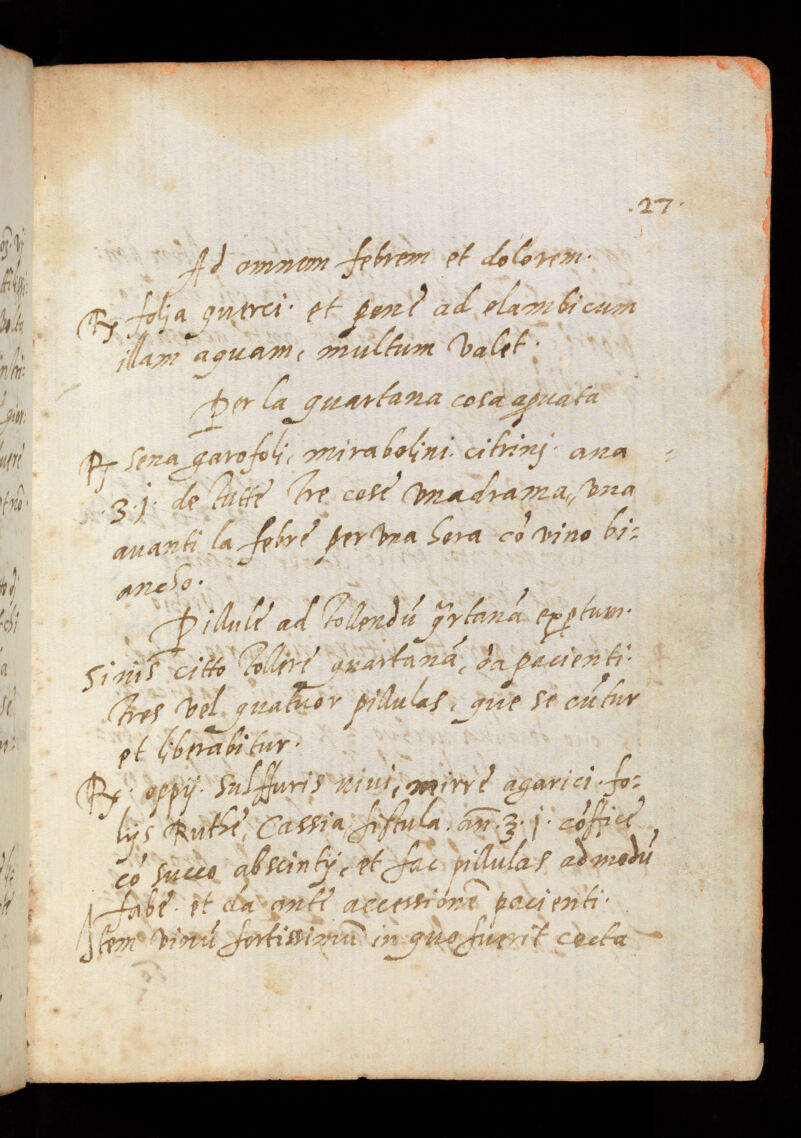 .27.
Ad omnem febrem et dolorem.
℞ folia querci. et pone ad elambicum
illam aquam, multum valet.
Per la quartana cosa apuata
℞ Sena garofoli, mirabolini. citrinj. ana
.ʒ.j. de tutte tre cose una drama, una
auanti la febre per una sera cō vino bi=
ancho.
Pillule ad tollendū qrtanā exptum.
Si uis citto tollere quartanā, da pacienti.
tres vel quatuor pillulas, que se cūtur
et liberabitur.
℞. oppij. sulffuris uiui, mirre agarici. fo=
lijs Ruthe, Cassia fistula. an̄.ʒ.j. cōffice
cō succo abscintij, et fac pillulas ad modū
fabe. et da ante accessionē pacienti.
Item vinū fortissimū in quo fuerit cocta